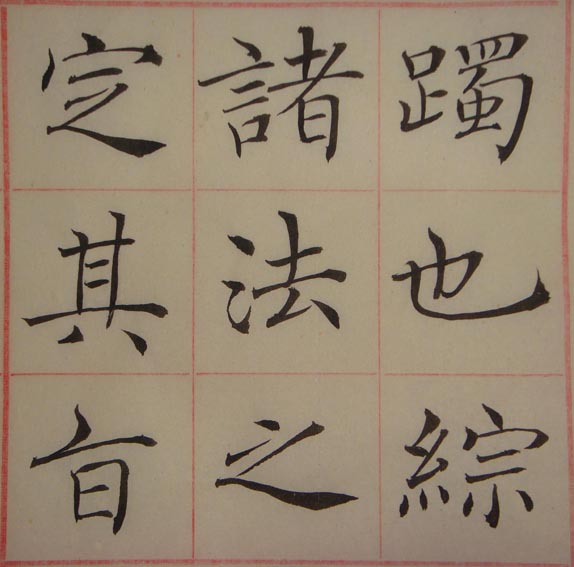 躅也綜
諸法之
定其旨